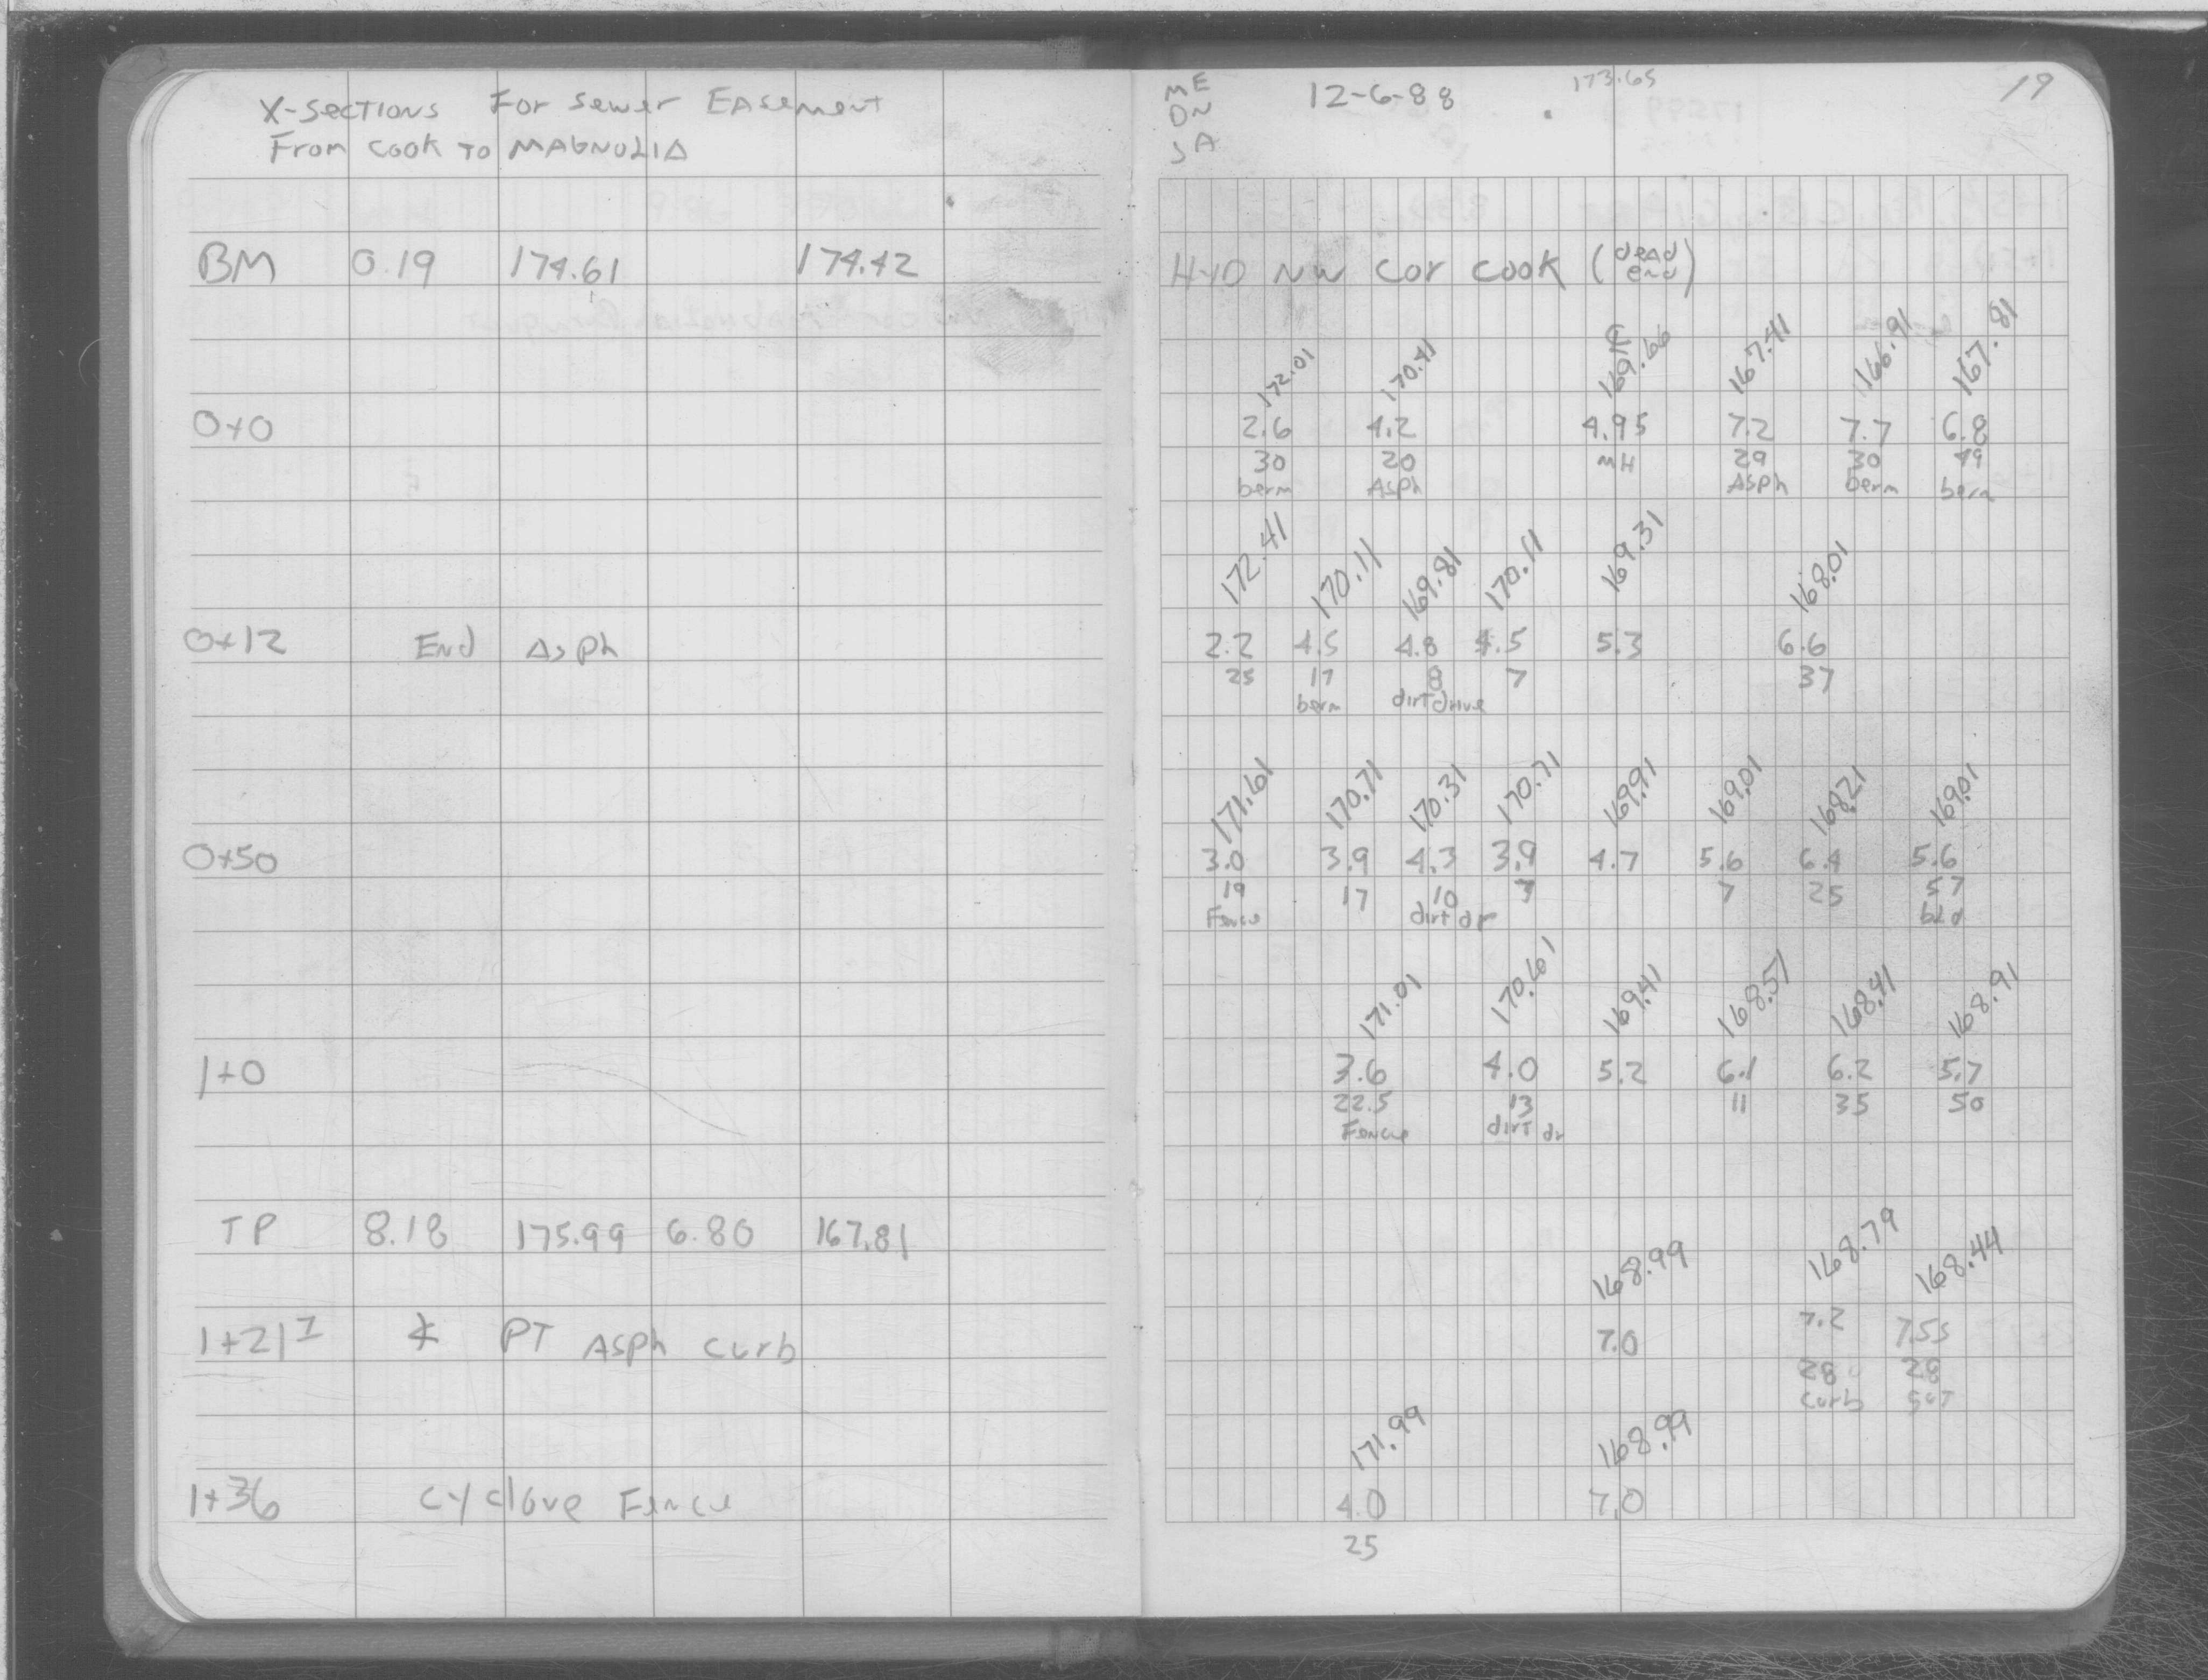 X-Sections For Sewer Easement
From Cook To MAGNOLIA
BM 0.19 174.61 174.42
0+0
0+12 End Asph
0+50
1+0
TP 8.18 175.99 6.80 167.81
1+21 * PT Asph Curb
1+36 Cyclove Fence
ME 12-6-88 173.65 19
DN
JA
HYD NW Cor Cook (dead end)
172.01 170.41 ℄ 169.66 167.41 166.91 167.81
2.6 4.2 4.95 7.2 7.7 6.8
30 20 MH 29 30 49
berm Asph Asph berm berm
172.41 170.11 169.81 170.11 169.31 168.01
2.2 4.5 4.8 4.5 5.3 6.6
25 17 8 7 37
berm dirt drive
171.61 170.71 170.31 170.71 169.91 169.01 168.21 169.01
3.0 3.9 4.3 3.9 4.7 5.6 6.4 5.6
19 17 10 3 7 25 57
Fence dirt dr bld
171.01 170.61 169.41 168.51 168.41 168.91
3.6 4.0 5.2 6.1 6.2 5.7
22.5 13 11 35 50
Fence dirt dr
168.99 168.79 168.44
7.0 7.2 7.55
28 28
curb gut
171.99 168.99
4.0 7.0
25